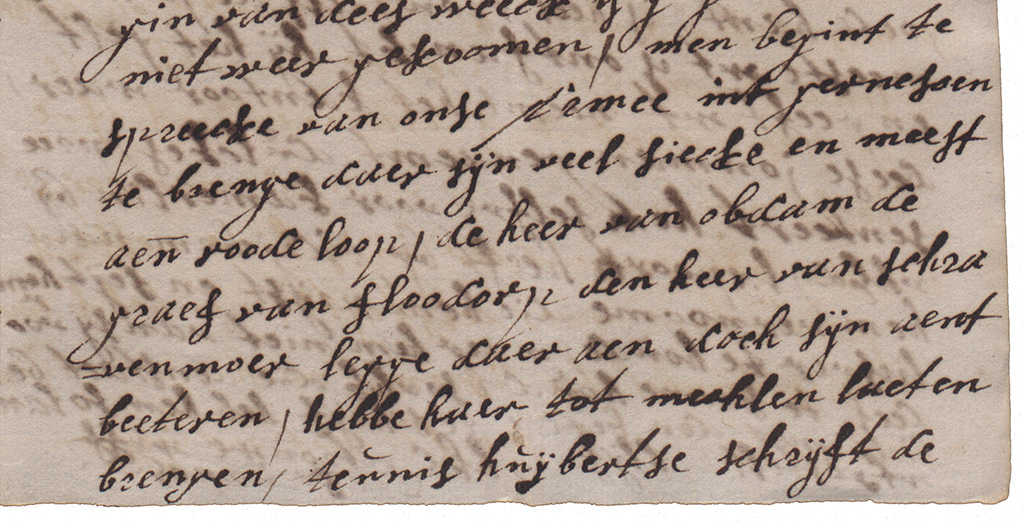 gin van dees weeck is
niet weer gekoomen, men begint te
spreecke van onse d'armee int gernesoen
te brenge daer sijn veel siecke en meest
aen roode loop, de heer van obdam de
graef van floodorp den heer van schra
=venmoer legge daer aen doch sijn aent
beeteren, hebbe haer tot mechlen laeten
brengen, teunis huijbertse schrijft de